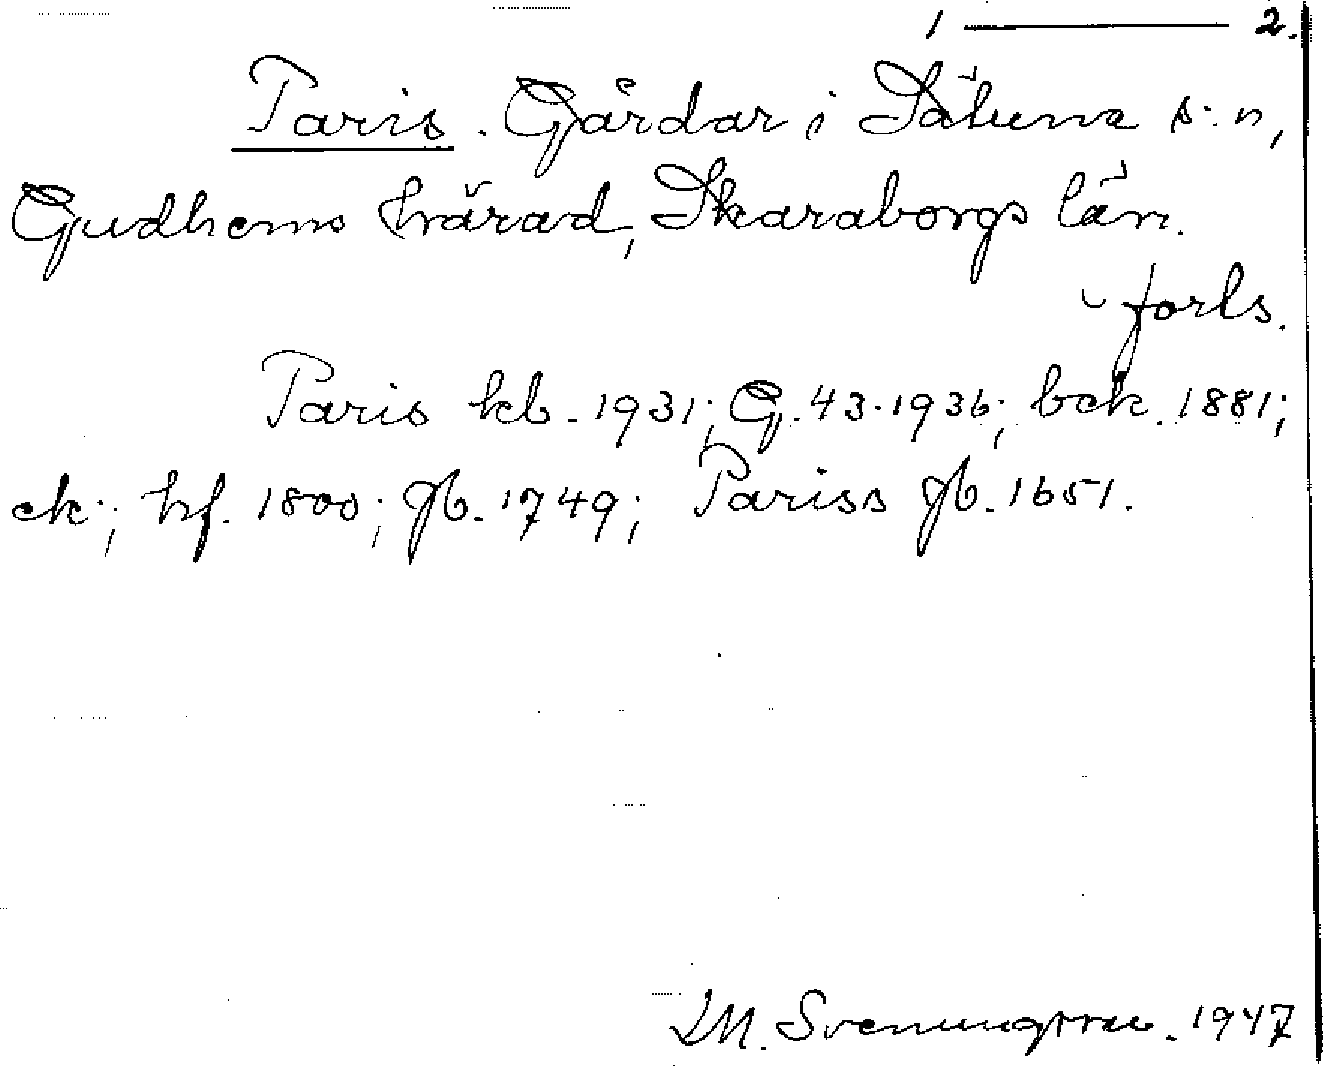 1 — 2.
Paris. Gårdar i Sätuna s:n,
Gudhems härad, Skaraborgs län.
˘ forts.
Paris kb. 1931; G. 43. 1936; bck. 1881;
ck; hf. 1800; jb. 1749; Pariss jb. 1651.
M. Svenungsson. 1947